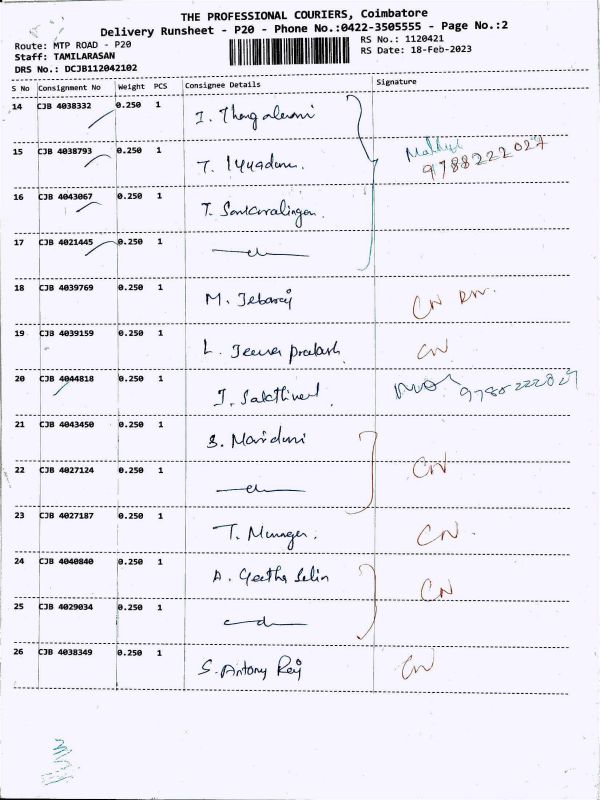 THE PROFESSIONAL COURIERS, Coimbatore
Delivery Runsheet - P20 - Phone No.:0422-3505555 - Page No.:2
Route: MTP ROAD - P20
Staff: TAMILARASAN
DRS No.: DCJB112042102
RS No.: 1120421
RS Date: 18-Feb-2023
S No Consignment No Weight PCS Consignee Details Signature
14 CJB 4038332 0.250 1 I.
15 CJB 4038793 0.250 1 T. 9788222027
16 CJB 4043067 0.250 1 T. Sankaralingam.
17 CJB 4021445 0.250 1
18 CJB 4039769 0.250 1 M. Jebaraj CN
19 CJB 4039159 0.250 1 L. Jeeva Prakash CN
20 CJB 4044818 0.250 1 J. Sakthivel 9788222027
21 CJB 4043450 0.250 1 S.
22 CJB 4027124 0.250 1 CN
23 CJB 4027187 0.250 1 T. Murugan. CN.
24 CJB 4040840 0.250 1 A. Geetha Selin CN
25 CJB 4029034 0.250 1
26 CJB 4038349 0.250 1 S. Antony Raj CN